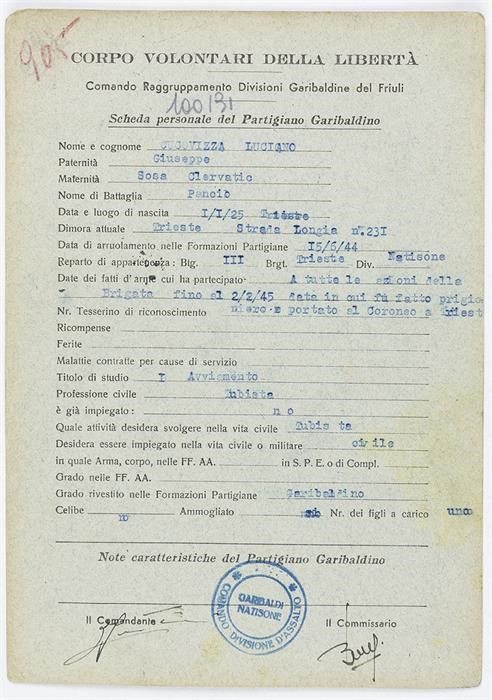 905
CORPO VOLONTARI DELLA LIBERTÀ
Comando Raggruppamento Divisioni Garibaldine del Friuli
100/31
Scheda personale del Partigiano Garibaldino
Nome e cognome CUCOVIZZA LUCIANO
Paternità Giuseppe
Maternità Sosa Clervatic
Nome di Battaglia Panciò
Data e luogo di nascita I/I/25 Trieste
Dimora attuale Trieste Strada Longia n.231
Data di arruolamento nelle Formazioni Partigiane I5/6/44
Reparto di appartenenza: Btg. III Brgt. Trieste Div. Natisone
Date dei fatti d'arme cui ha partecipato: A tutte le azioni della
Brigata fino al 2/2/45 data in cui fù fatto prigio
Nr. Tesserino di riconoscimento niero e portato al Coroneo a Triest
Ricompense
Ferite
Malattie contratte per cause di servizio
Titolo di studio I Avviamento
Professione civile Tubista
è già impiegato: no
Quale attività desidera svolgere nella vita civile Tubista
Desidera essere impiegato nella vita civile o militare civile
in quale Arma, corpo, nelle FF. AA. in S. P. E. o di Compl.
Grado nelle FF. AA.
Grado rivestito nelle Formazioni Partigiane Garibaldino
Celibe no Ammogliato Nr. dei figli a carico uno
Note caratteristiche del Partigiano Garibaldino
COMANDO DIVISIONE D'ASSALTO
GARIBALDI
NATISONE
Il Comandante Il Commissario